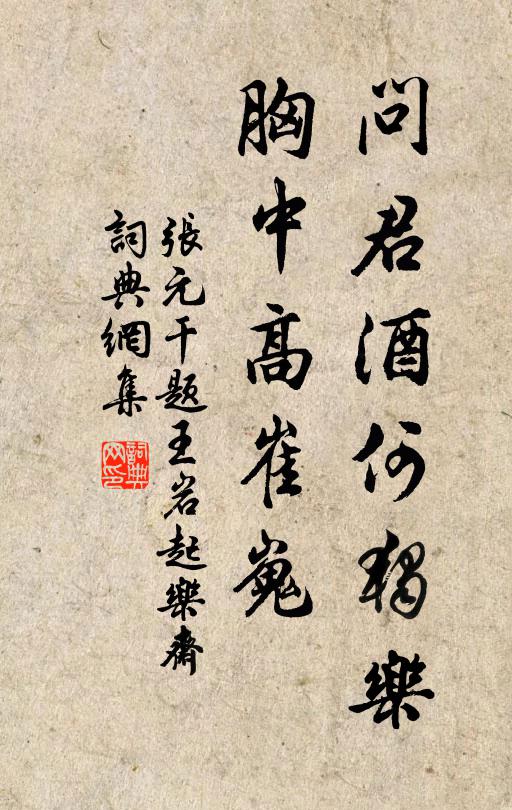 問君酒何獨樂
胸中高崔嵬
張元干题王岩起樂齋
詞典網集
詞典網印